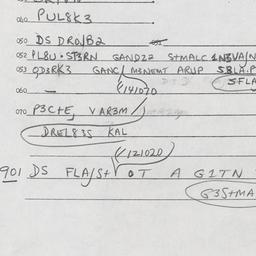 040 PUL8K3
050 DS DROJB2
052 PL8U • SP3RN GAND22 S+MALC 1N3VA/N
053 QD3RK3 GANC/ M3NEWT ARUP SBLA.P
SFLA
(/141070
060 —
070 P3C+E, VAR3M/
DREL83S KAL
(/121020
901 DS FLA/S+ • T A G1TN
G3S+MA